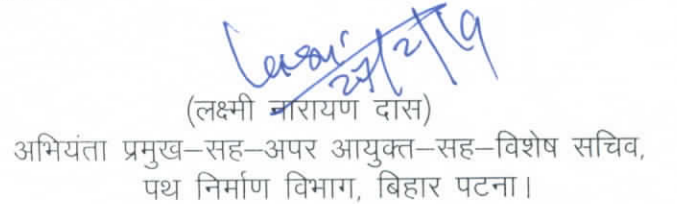 27/2/19
(लक्ष्मी नारायण दास)
अभियंता प्रमुख–सह–अपर आयुक्त–सह–विशेष सचिव,
पथ निर्माण विभाग, बिहार पटना।